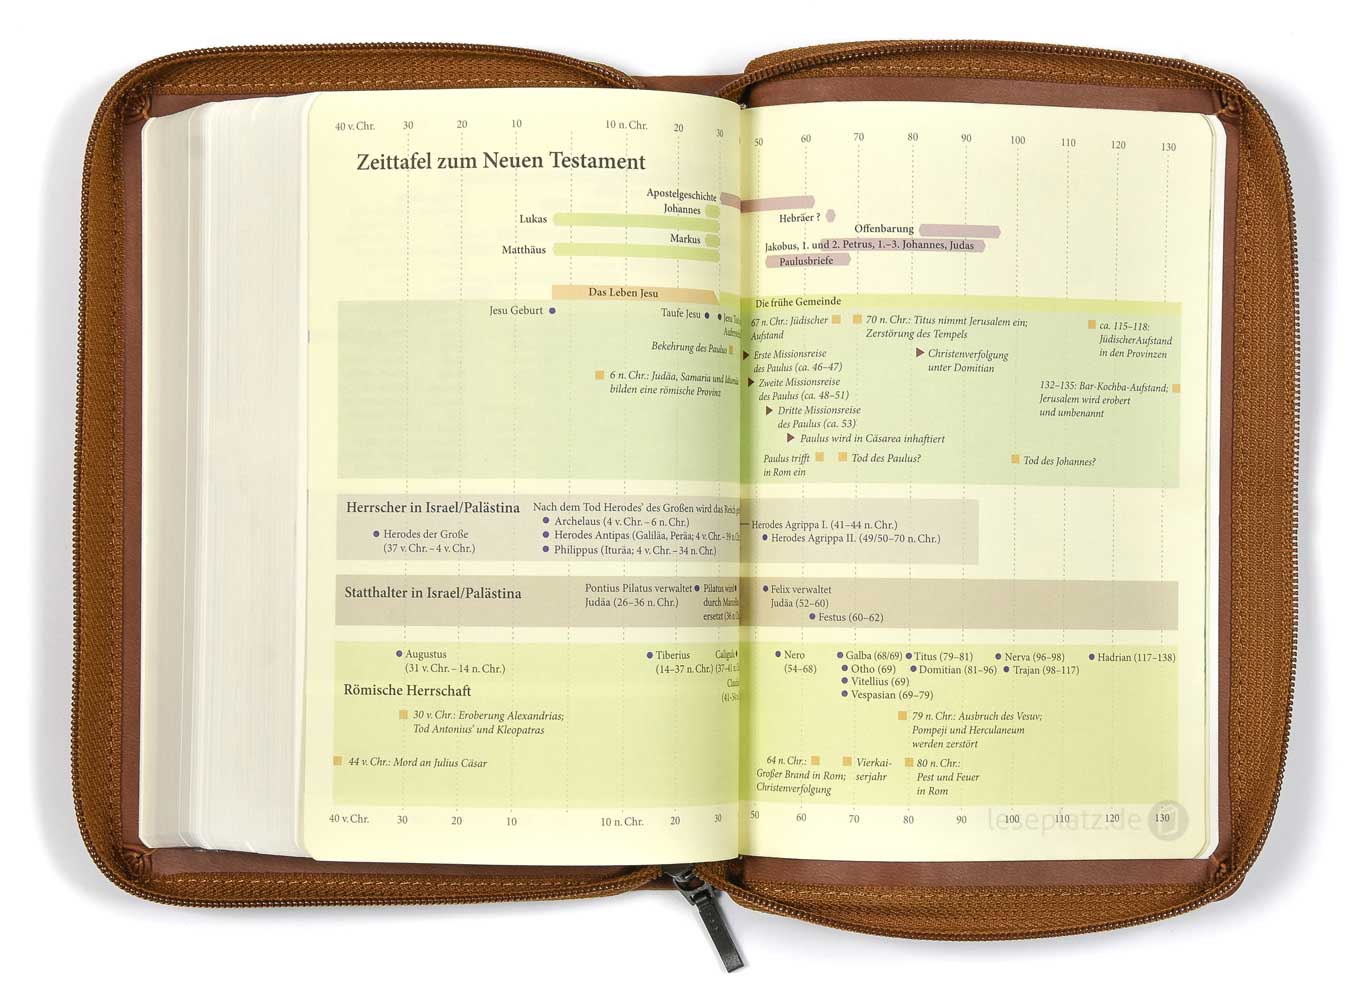 40 v. Chr. 30 20 10 10 n. Chr. 20 30
Zeittafel zum Neuen Testament
Apostelgeschichte
Johannes
Lukas
Markus
Matthäus
Das Leben Jesu
Jesu Geburt
Taufe Jesu
Bekehrung des Paulus
6 n. Chr.: Judäa, Samaria und
bilden eine römische Provinz
Herrscher in Israel/Palästina
Nach dem Tod Herodes’ des Großen wird das Reich
Archelaus (4 v. Chr. – 6 n. Chr.)
Herodes der Große
(37 v. Chr. – 4 v. Chr.)
Herodes Antipas (Galiläa, Peräa; 4 v. Chr. – 39 n.
Philippus (Ituräa; 4 v. Chr. – 34 n. Chr.)
Statthalter in Israel/Palästina
Pontius Pilatus verwaltet
Judäa (26–36 n. Chr.)
Pilatus wird
durch
ersetzt (36 n.
Augustus
(31 v. Chr. – 14 n. Chr.)
Tiberius
(14–37 n. Chr.)
Römische Herrschaft
30 v. Chr.: Eroberung Alexandrias;
Tod Antonius’ und Kleopatras
44 v. Chr.: Mord an Julius Cäsar
40 v. Chr. 30 20 10 10 n. Chr. 20 30
50 60 70 80 90 100 110 120 130
Hebräer ?
Offenbarung
Jakobus, 1. und 2. Petrus, 1.–3. Johannes, Judas
Paulusbriefe
Die frühe Gemeinde
67 n. Chr.: Jüdischer
Aufstand
70 n. Chr.: Titus nimmt Jerusalem ein;
Zerstörung des Tempels
ca. 115–118:
Jüdischer Aufstand
in den Provinzen
Erste Missionsreise
des Paulus (ca. 46–47)
Christenverfolgung
unter Domitian
Zweite Missionsreise
des Paulus (ca. 48–51)
132–135: Bar-Kochba-Aufstand;
Jerusalem wird erobert
und umbenannt
Dritte Missionsreise
des Paulus (ca. 53)
Paulus wird in Cäsarea inhaftiert
Paulus trifft
in Rom ein
Tod des Paulus?
Tod des Johannes?
Herodes Agrippa I. (41–44 n. Chr.)
Herodes Agrippa II. (49/50–70 n. Chr.)
Felix verwaltet
Judäa (52–60)
Festus (60–62)
Nero
(54–68)
Galba (68/69)
Otho (69)
Vitellius (69)
Vespasian (69–79)
Titus (79–81)
Domitian (81–96)
Nerva (96–98)
Trajan (98–117)
Hadrian (117–138)
79 n. Chr.: Ausbruch des Vesuv;
Pompeji und Herculaneum
werden zerstört
64 n. Chr.:
Großer Brand in Rom;
Christenverfolgung
Vierkai-
serjahr
80 n. Chr.:
Pest und Feuer
in Rom
50 60 70 80 90 100 110 120 130
leseplatz.de